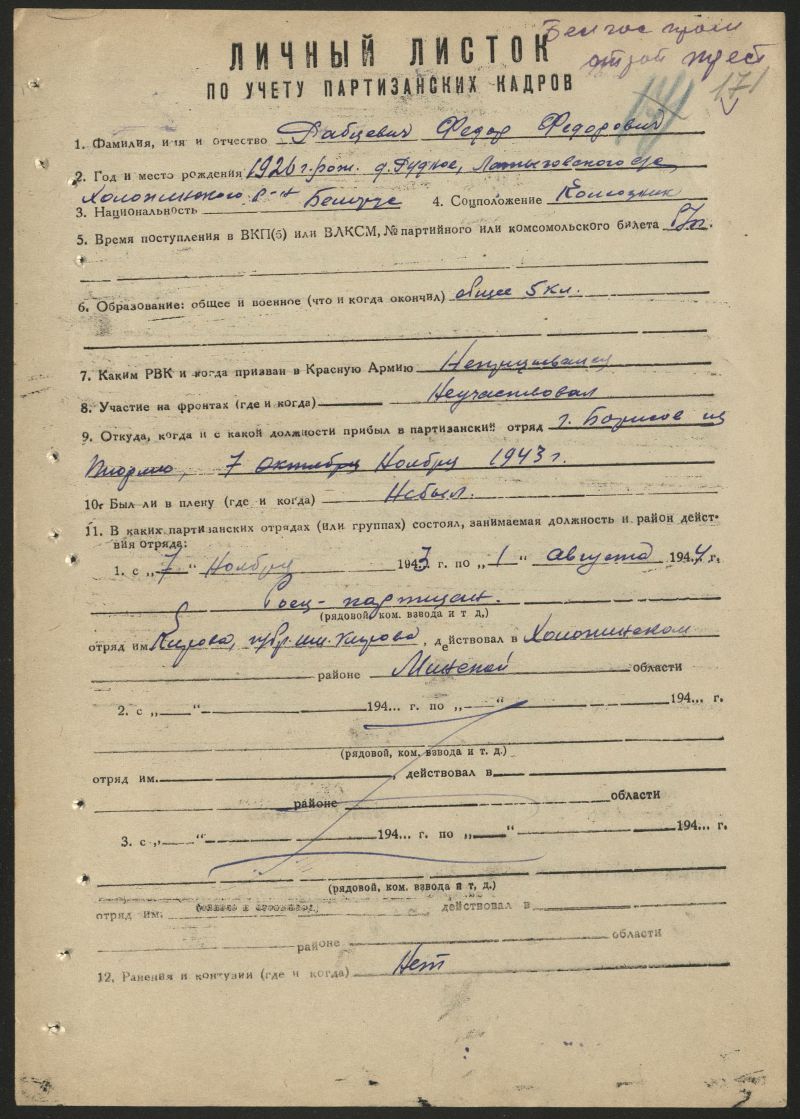 ЛИЧНЫЙ ЛИСТОК
ПО УЧЕТУ ПАРТИЗАНСКИХ КАДРОВ
171
1. Фамилия, имя и отчество Дабцевич Федор Федорович
2. Год и место рождения 1926 г. рож. д. Рудное,
Холопиничского р-н
3. Национальность Беларус 4. Соцположение Колхозник
5. Время поступления в ВКП(б) или ВЛКСМ, № партийного или комсомольского билета б/п.
6. Образование: общее и военное (что и когда окончил) общее 5 кл.
7. Каким РВК и когда призван в Красную Армию Непризывался
8. Участие на фронтах (где и когда) Неучаствовал
9. Откуда, когда и с какой должности прибыл в партизанский отряд г. Борисов из
7 октября Ноября 1943 г.
10. Был ли в плену (где и когда) Небыл.
11. В каких партизанских отрядах (или группах) состоял, занимаемая должность и район дейст-
вия отряда:
1. с „7“ Ноября 1943 г. по „1“ августа 1944 г.
Боец-партизан.
(рядовой, ком. взвода и т д.)
отряд им. Кирова, п/бр им. Кирова, действовал в Холопинском
районе Минской области
2. с „ “ 194... г. по „ “ 194... г.
(рядовой, ком. взвода и т. д.)
отряд им. , действовал в
районе области
3. с „ “ 194... г. по „ “ 194... г.
(рядовой, ком. взвода и т, д.)
отряд им. действовал в
районе области
12. Ранения и контузии (где и когда) Нет